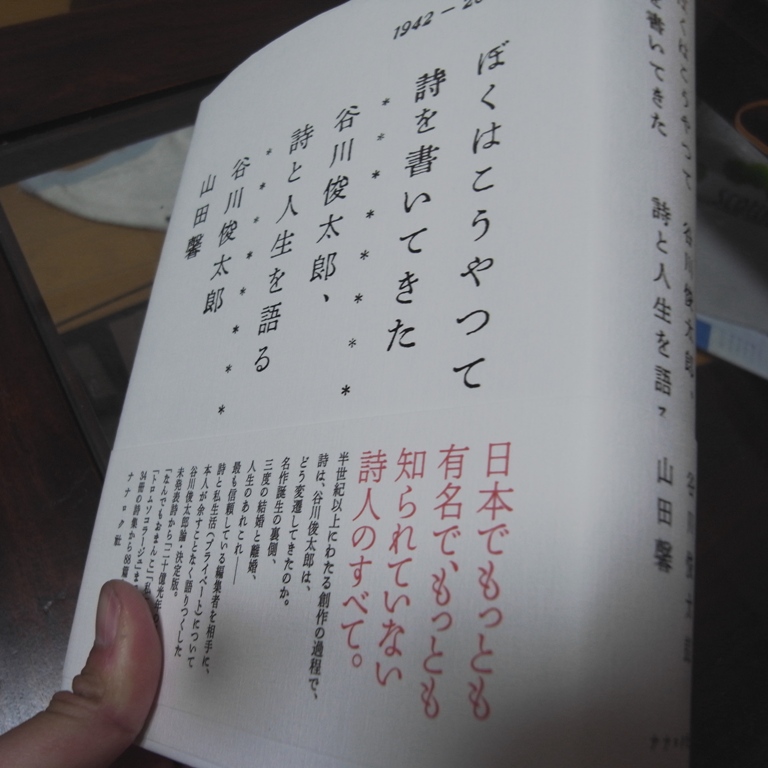 1942 – 20
ぼくはこうやって
詩を書いてきた
谷川俊太郎、
詩と人生を語る
谷川俊太郎
山田馨
日本でもっとも
有名で、もっとも
知られていない
詩人のすべて。
半世紀以上にわたる創作の過程で、
詩は、谷川俊太郎は、
どう変遷してきたのか。
名作誕生の裏側、
三度の結婚と離婚、
人生のあれこれ――
最も信頼している編集者を相手に、
詩と私生活（プライベート）について
本人が余すことなく語りつくした
谷川俊太郎論・決定版。
未発表詩から「二十億光年の
「なんでもおまんこ」「私
「トロムソコラージュ」ま
34冊の詩集から88篇
ナナロク社
ぼくはこうやって
を書いてきた
谷川俊太郎、
詩と人生を語る
谷川俊太郎
山田馨